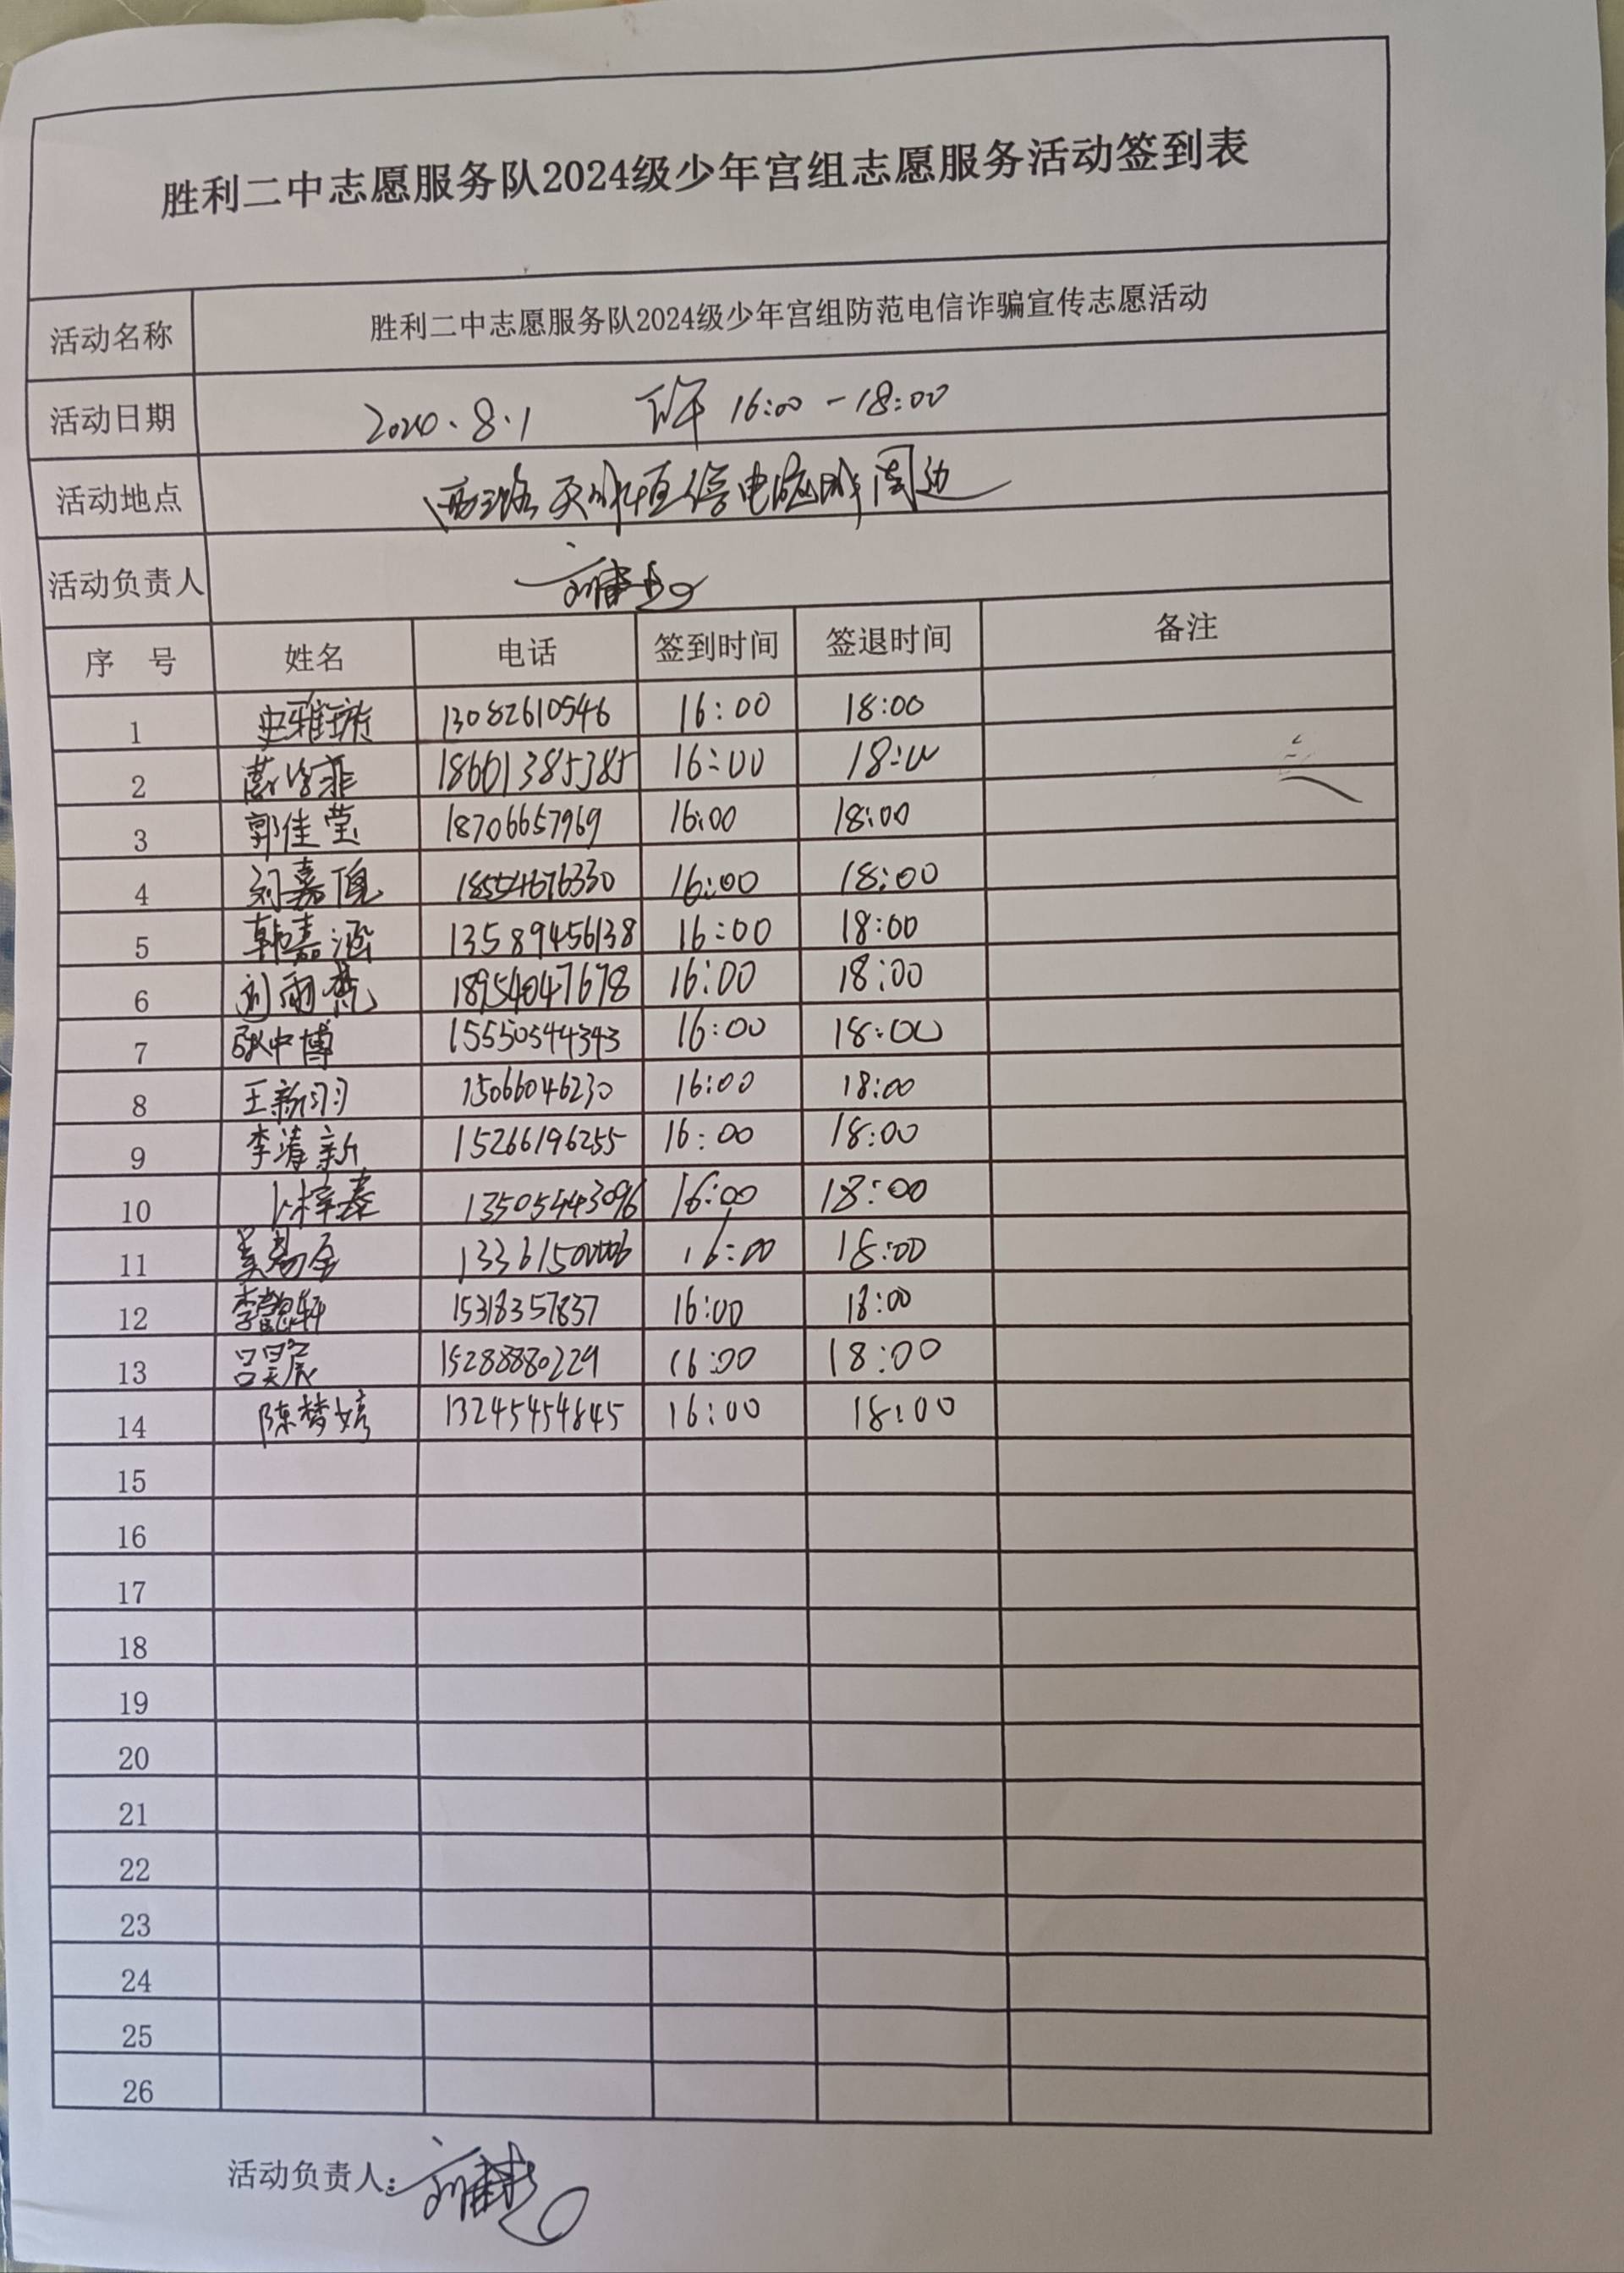 胜利二中志愿服务队2024级少年宫组志愿服务活动签到表
活动名称 胜利二中志愿服务队2024级少年宫组防范电信诈骗宣传志愿活动
活动日期 8.1 下午 16:00-18:00
活动地点 西三路天水恒信电脑城周边
活动负责人
序 号 姓名 电话 签到时间 签退时间 备注
1 史雅 13082610546 16:00 18:00
2 18661385385 16:00 18:00
3 郭佳莹 18706657969 16:00 18:00
4 刘嘉 18554676330 16:00 18:00
5 韩嘉涵 13589456138 16:00 18:00
6 刘雨 18954047678 16:00 18:00
7 耿中博 15550544343 16:00 18:00
8 王新 15066046230 16:00 18:00
9 李清新 15266196255 16:00 18:00
10 13505443096 16:00 18:00
11 16:00 18:00
12 李懿轩 15318357837 16:00 18:00
13 吕昊宸 15288880229 16:00 18:00
14 陈梦婷 13245454845 16:00 18:00
15
16
17
18
19
20
21
22
23
24
25
26
活动负责人: